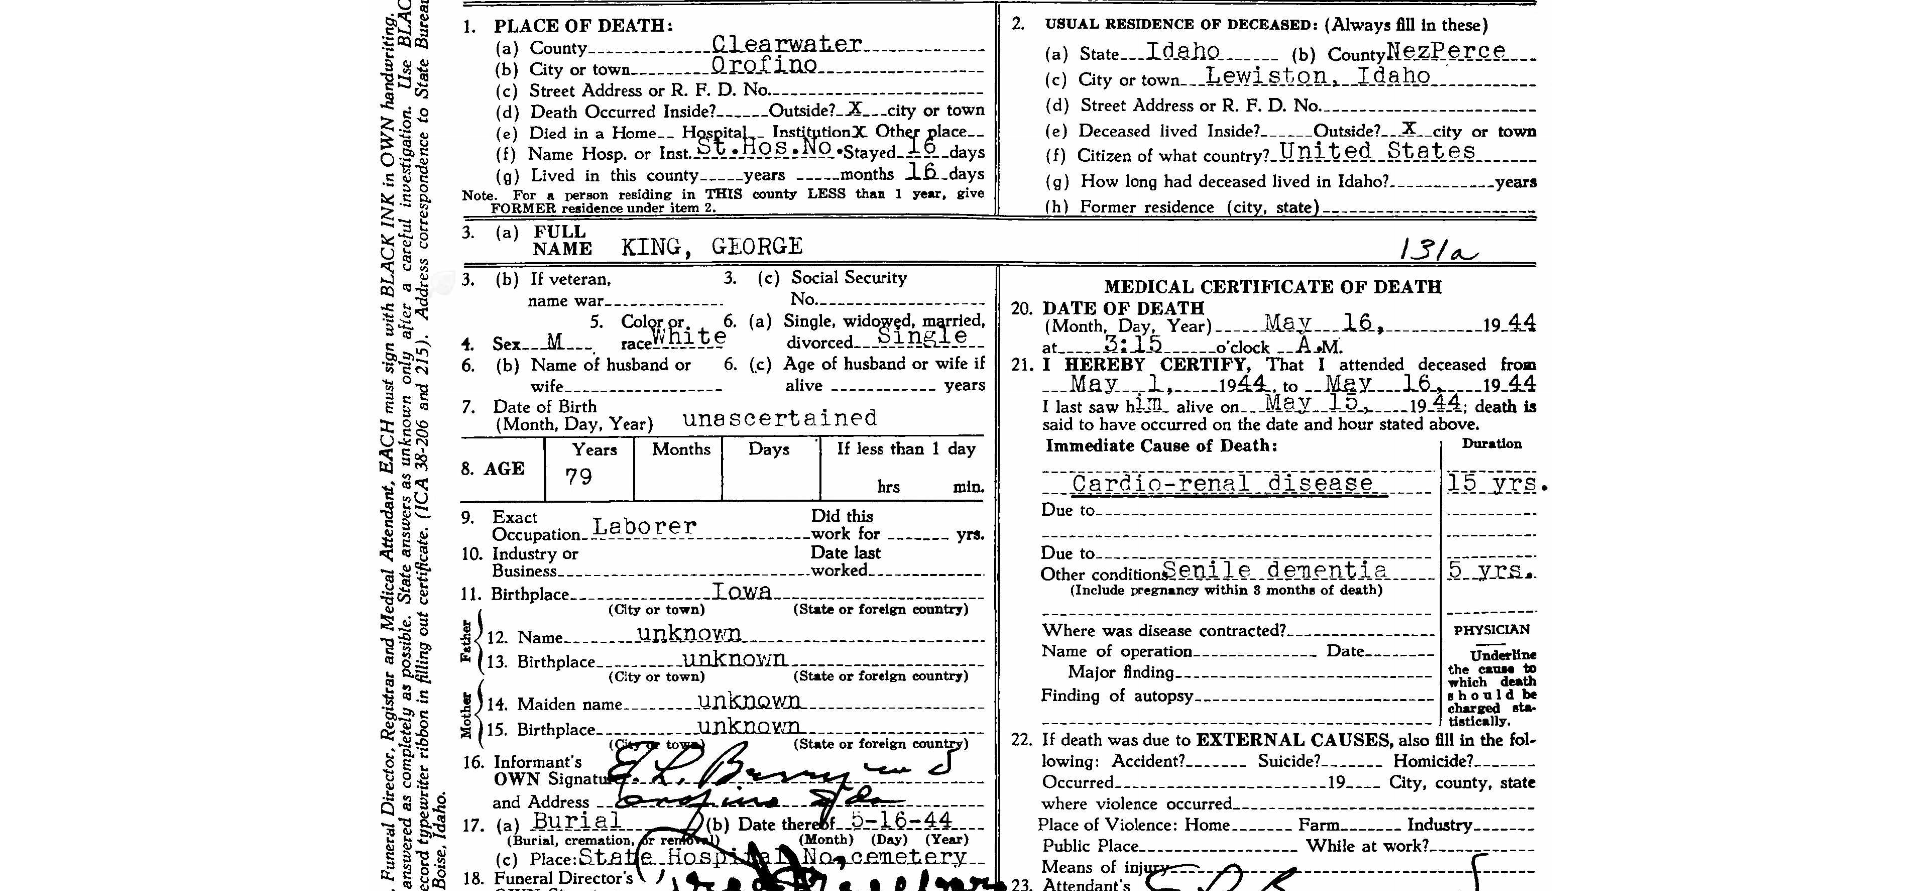 Funeral Director, Registrar and Medical Attendant, EACH must sign with BLACK INK in OWN handwriting.
answered as completely as possible. State answers as unknown only after a careful investigation. Use BLAC
ecord typewriter ribbon in filling out certificate. (ICA 38-206 and 215). Address correspondence to State Bureau
Boise, Idaho.
1. PLACE OF DEATH:
(a) County Clearwater
(b) City or town Orofino
(c) Street Address or R. F. D. No.
(d) Death Occurred Inside? Outside? X city or town
(e) Died in a Home Hospital Institution X Other place
(f) Name Hosp. or Inst. St.Hos.No. Stayed 16 days
(g) Lived in this county years months 16 days
Note. For a person residing in THIS county LESS than 1 year, give
FORMER residence under item 2.
2. USUAL RESIDENCE OF DECEASED: (Always fill in these)
(a) State Idaho (b) County NezPerce
(c) City or town Lewiston, Idaho
(d) Street Address or R. F. D. No.
(e) Deceased lived Inside? Outside? X city or town
(f) Citizen of what country? United States
(g) How long had deceased lived in Idaho? years
(h) Former residence (city, state)
3. (a) FULL
NAME KING, GEORGE 131a
3. (b) If veteran, 3. (c) Social Security
name war No.
5. Color or 6. (a) Single, widowed, married,
4. Sex M race White divorced Single
6. (b) Name of husband or 6. (c) Age of husband or wife if
wife alive years
7. Date of Birth
(Month, Day, Year) unascertained
8. AGE Years Months Days If less than 1 day
79 hrs min.
9. Exact Did this
Occupation Laborer work for yrs.
10. Industry or Date last
Business worked
11. Birthplace Iowa
(City or town) (State or foreign country)
Father
12. Name unknown
13. Birthplace unknown
(City or town) (State or foreign country)
Mother
14. Maiden name unknown
15. Birthplace unknown
(City or town) (State or foreign country)
16. Informant's
OWN Signature E. L. Berry
and Address Orofino Ida
17. (a) Burial (b) Date thereof 5-16-44
(Burial, cremation, or removal) (Month) (Day) (Year)
(c) Place: State Hospital No. cemetery
18. Funeral Director's
MEDICAL CERTIFICATE OF DEATH
20. DATE OF DEATH
(Month, Day, Year) May 16, 1944
at 3:15 o'clock A.M.
21. I HEREBY CERTIFY, That I attended deceased from
May 1, 1944, to May 16, 1944
I last saw him alive on May 15, 1944; death is
said to have occurred on the date and hour stated above.
Immediate Cause of Death: Duration
Cardio-renal disease 15 yrs.
Due to
Due to
Other conditions Senile dementia 5 yrs.
(Include pregnancy within 3 months of death)
Where was disease contracted?
Name of operation Date
Major finding
Finding of autopsy
PHYSICIAN
Underline
the cause to
which death
should be
charged sta-
tistically.
22. If death was due to EXTERNAL CAUSES, also fill in the fol-
lowing: Accident? Suicide? Homicide?
Occurred 19 City, county, state
where violence occurred
Place of Violence: Home Farm Industry
Public Place While at work?
Means of injury
23. Attendant's